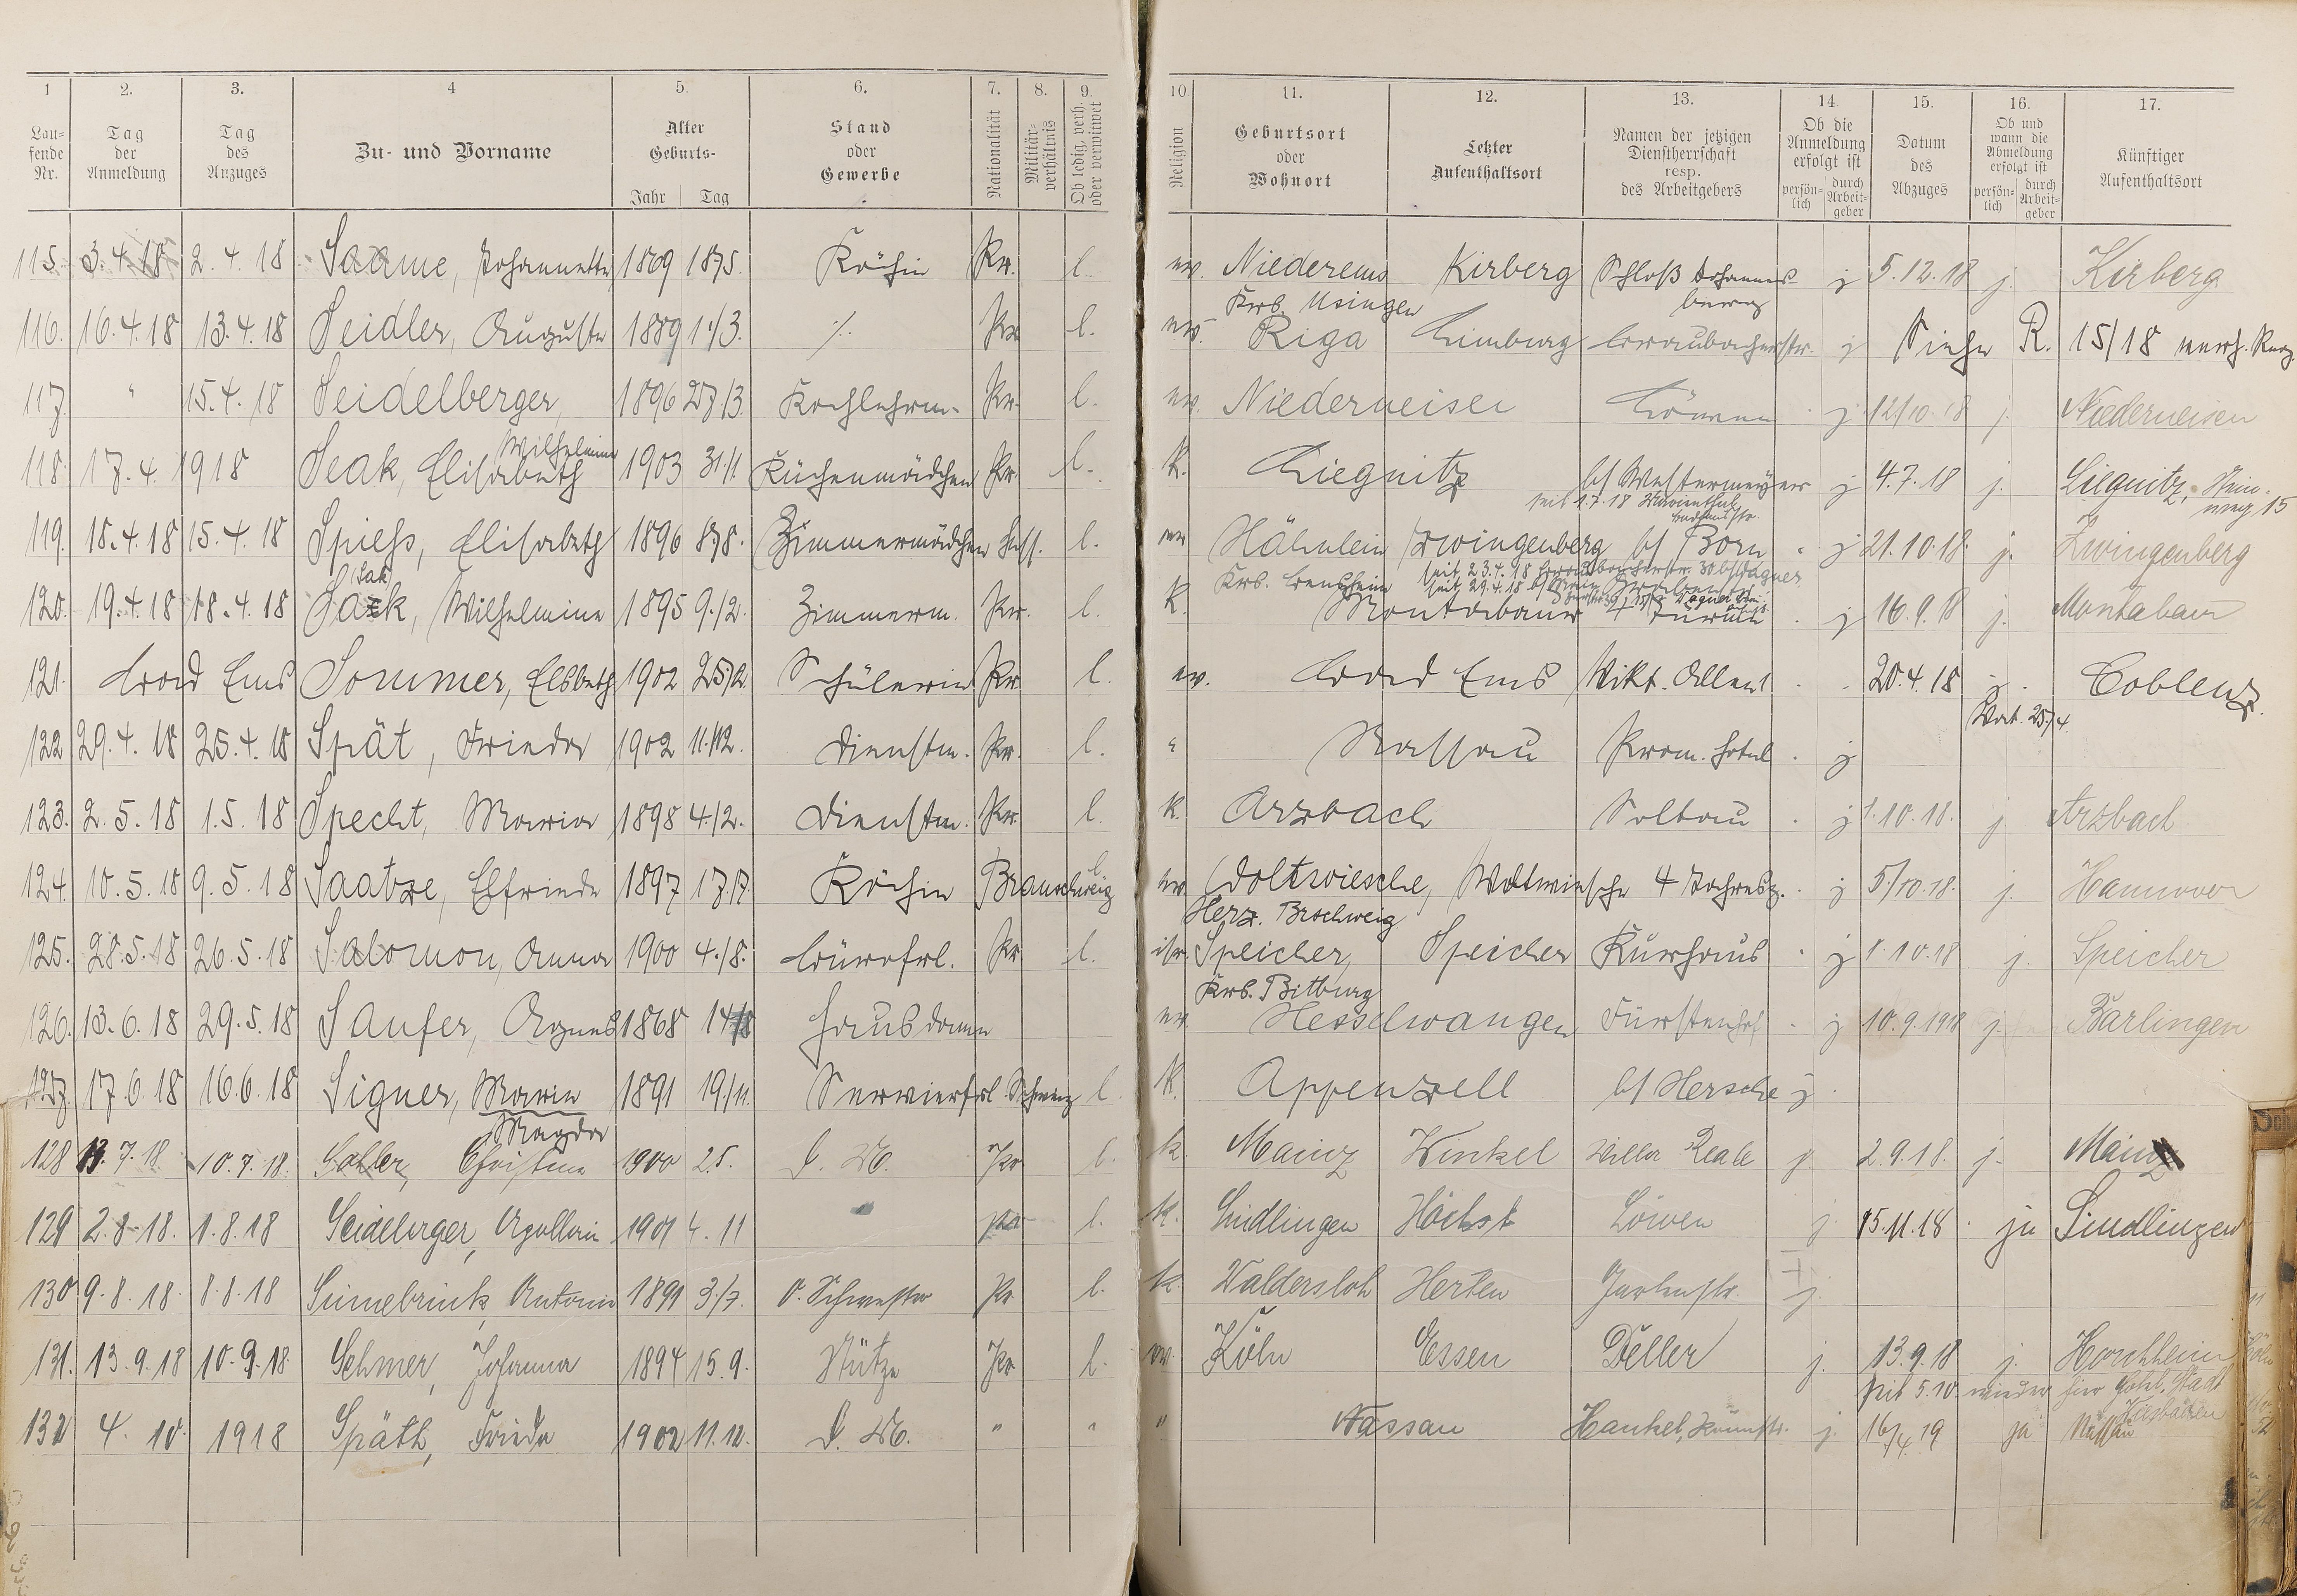 1 2. 3. 4 5. 6. 7. 8. 9. 10. 11. 12. 13. 14. 15. 16. 17.
Lau-fende Nr. Tag der Anmeldung Tag des Anzuges Zu- und Vorname Alter Geburts- Jahr Tag Stand oder Gewerbe Nationalität Militär-verhältnis Ob ledig, verh. oder verwitwet Religion Geburtsort oder Wohnort Letzter Aufenthaltsort Namen der jetzigen Dienstherrschaft resp. des Arbeitgebers Ob die Anmeldung erfolgt ist persön-lich durch Arbeit-geber Datum des Abzuges Ob und wann die Abmeldung erfolgt ist persön-lich durch Arbeit-geber Künftiger Aufenthaltsort
115. 3.4.18 2.4.18 Saame, Johannette 1869 Köchin Pr. l. ev. Niederems Kirberg Schloß Johannes- j 5.12.18 j. Kirberg
Krs. Usingen berg
116. 16.4.18 13.4.18 Seidler, Auguste 1889 Pr. l. ev. Riga Limburg j Siehe R. 15/18
117. " 15.4.18 Seidelberger, 1896 27/3. Kochlehrm. Pr. l. ev. Niederneisen Löwen j 12/10.18 j. Niederneisen
Wilhelmine
118. 17.4.1918 Seak, Elisabeth 1903 31./1. Küchenmädchen Pr. l. k. Liegnitz b/ Westermeyer j 4.7.18 j. Liegnitz, Stein-
seit 1.7.18 Marienthal weg 15
119. 18.4.18 15.4.18 Spiess, Elisabeth 1896 8/8. Zimmermädchen Hess. l. ev. Hähnlein Zwingenberg b/ Born j 21.10.18. j. Zwingenberg
Sak Krs. Bensheim seit 23.4.18 seit 29.4.18
120. 19.4.18 18.4.18 Sack, Wilhelmine 1895 9./2. Zimmerm. Pr. l. k. Montabaur j 16.9.18 j. Montabaur
121. Bad Ems Sommer, Elsbeth 1902 25/2. Schülerin Pr. l. ev. Bad Ems Vikt. Allee 1 20.4.18 j. Coblenz.
25./4.
122 29.4.18 25.4.18 Spät, Frieda 1902 11./12. Dienstm. Pr. l. " Nassau Prom. Hotel j
123. 2.5.18 1.5.18 Specht, Maria 1898 4./2. Dienstm. Pr. l. k. Arzbach Soltau j 1.10.18. j Arzbach
124. 10.5.18 9.5.18 Saatze, Elfriede 1897 17/7. Köchin Braunschweig l. ev. Woltwiesche, Woltwiesche j 5/10.18. j. Hannover
Herz. Brschweig
125. 28.5.18 26.5.18 Salomon, Anna 1900 4./8. Bürofrl. Pr. l. isr. Speicher, Speicher Kurhaus j 1.10.18 j. Speicher
Krs. Bitburg
126. 13.6.18 29.5.18 Saufer, Agnes 1868 14/8 Hausdame ev. Hesselwangen Fürstenhof j 10.9.1918 j. Barlingen
127 17.6.18 16.6.18 Signer, Marie 1891 19./11. Servierfrl. Schweiz l. k. Appenzell b/ Hersche j
Magda
128 13.7.18 10.7.18. Christine 1900 2.5. D. M. Pr l. k. Mainz Winkel Villa Reale j. 2.9.18. j. Mainz
129 2.8.18. 1.8.18 Seideberger, Apollonia 1901 4.11 l. k. Sindlingen Höchst Löwen j. 15.11.18 ja Sindlingen
130 9.8.18. 8.8.18 Antonie 1891 3/7. O. Schwester Pr. l. k. Waldersloh Herten j.
131. 13.9.18 10.9.18. Sehmer, Johanna 1894 15.9. Stütze Pr. l. ev. Köln Essen Deller j. 13.9.18 j. Horchheim
seit 5.10 wieder hier Hotel Stadt Wiesbaden
132 4.10. 1918 Späth, Frieda 1902 11.12. D. M. " " " Nassau Hankel, j. 16/4 19 ja Nassau